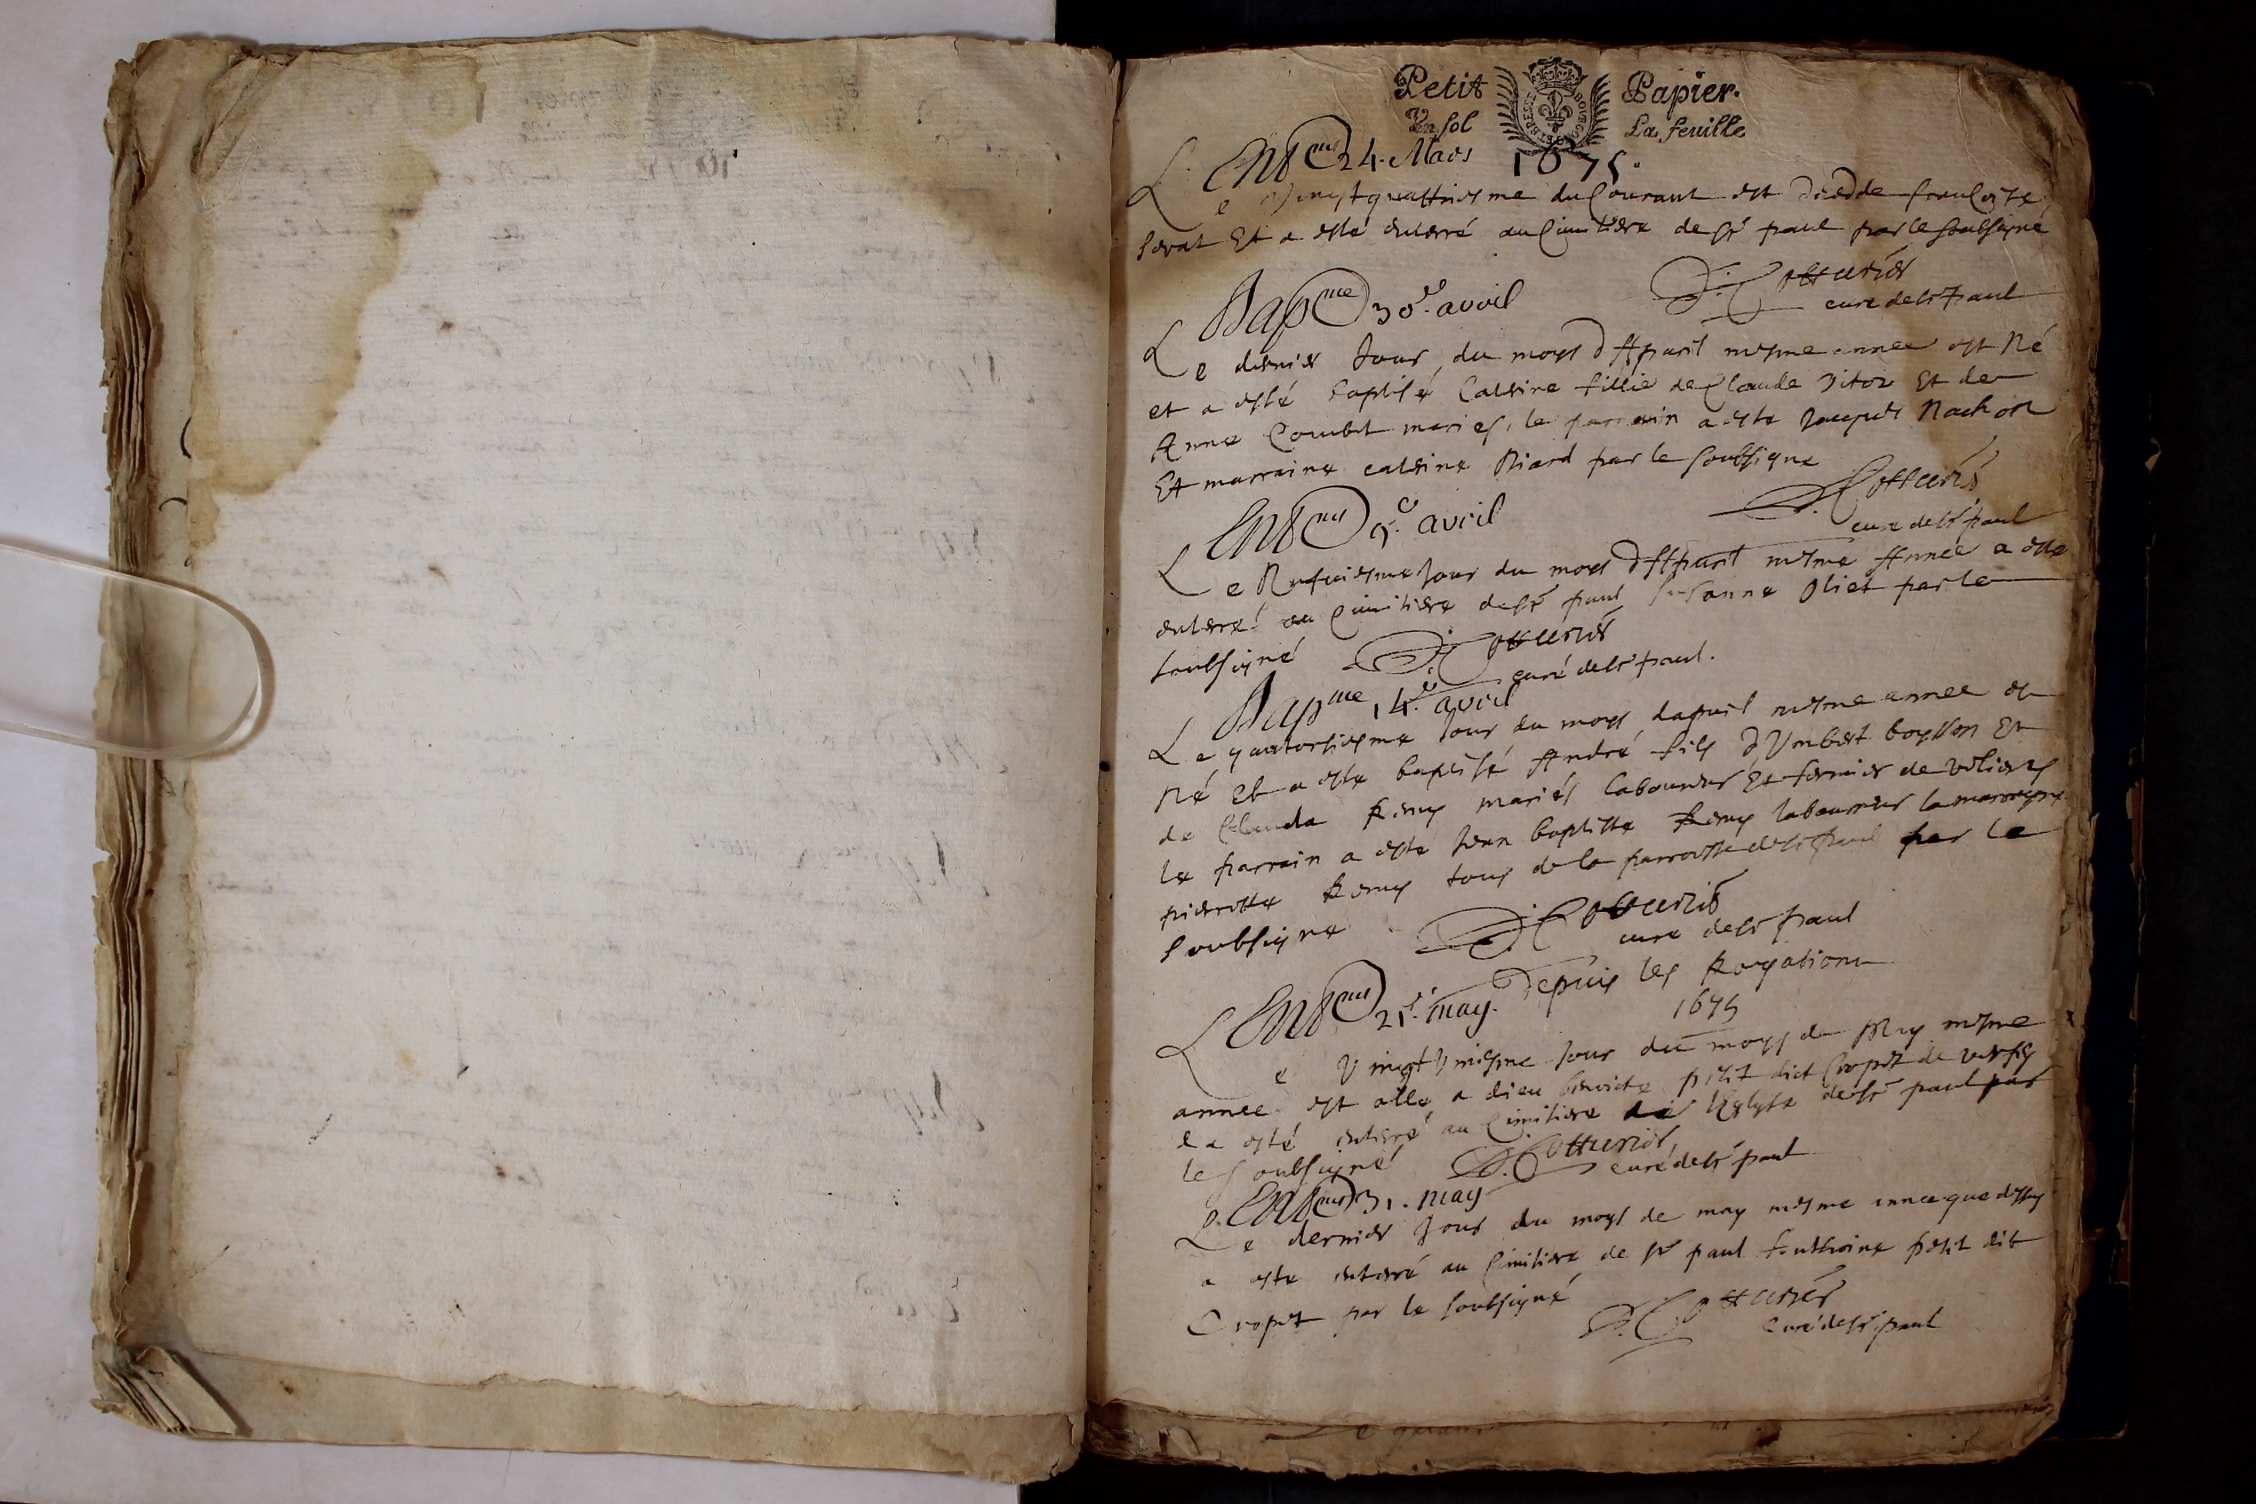 Petit Papier.
Un sol La feuille
BRESSE BOURGO
Ent^{ent} 24. Mars 1675.
Le vingt quattriesme du Courant est decedde
et a esté enterré au Cimitiere de S^t paul par le soubsigné
D. Cotturier
curé de S^t Paul
Bap^{me} 30^e. avril
Le dernier Jour du moys d'Apvril mesme annee est Né
et a esté baptisé Catrine fillie de Claude Et de
Anne mariés, le parrain a este Jacques Nachon
Et marraine catrine Riard par le soubsigne
D. Cotturier
cure de S^t paul
Ent^{ent} 9^e. avril
Le Jour du moys d'Apvril mesme Annee a este
enterré au Cimitiere de S^t paul Susanne Oliet par le
soubsigné D. Cotturier
curé de S^t paul.
Bap^{me} 14^e. avril
Le quatorsiesme Jour du moys dapvril mesme annee est
Né et a este baptisé André fils d'Umbert boysson Et
de Clauda Remy mariés laboureur Et fermier de
le parrain a este Jean baptiste Remy laboureur la marrayne
pierrette Remy tous de la parroisse de S^t paul par le
soubsigne D. Cotturier
cure de S^t paul
Ent^{ent} 21^e. may. Depuis les Rogations
1675
Le Vingt Uniesme Jour du moys de May mesme
annee est alle a dieu benoicte petit dict Cropet de
e a esté enterré au Cimitiere de l'Eglyse de S^t paul par
le soubsigné D. Cotturier
curé de S^t paul
Ent^{ent} 31. may
Le dernier Jour du moys de may mesme annee que dessus
a este enterré au Cimitiere de S^t paul petit dit
Cropet par le soubsigné D. Cotturier
Curé de S^t paul